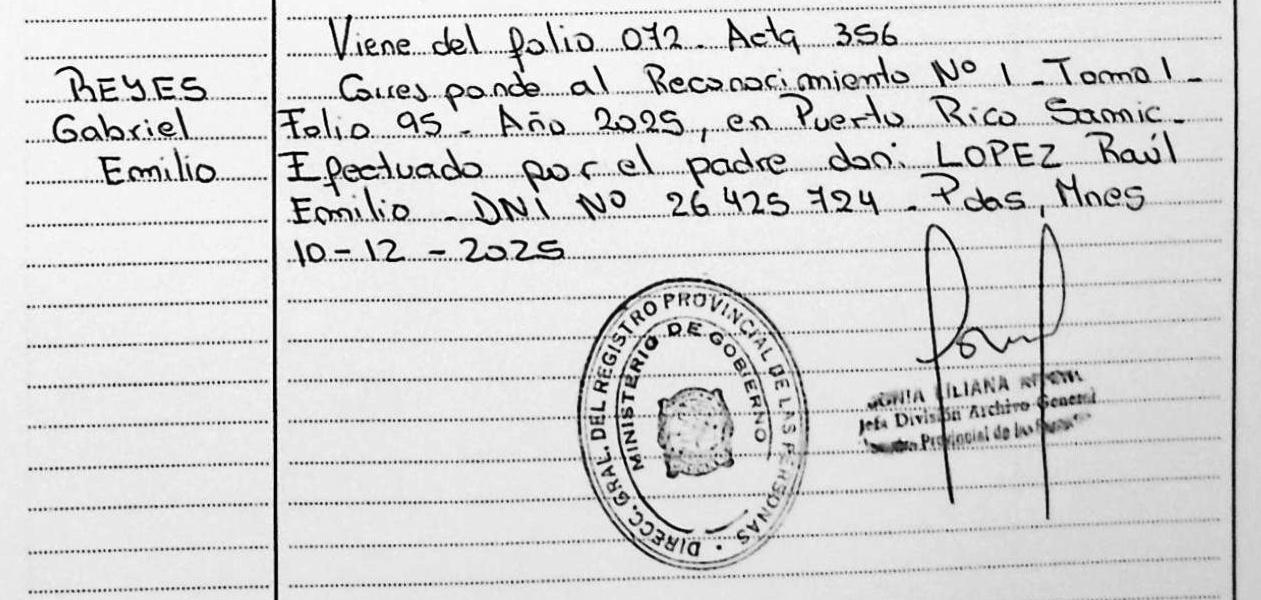 Viene del folio 072. Acta 356
REYES
Gabriel
Emilio
Corresponde al Reconocimiento Nº 1 - Tomo 1 -
Folio 95 - Año 2025, en Puerto Rico Samic.
Efectuado por el padre don: LOPEZ Raúl
Emilio - DNI Nº 26 425 724 - Pdas, Mnes
10-12-2025
DIRECC. GRAL. DEL REGISTRO PROVINCIAL DE LAS PERSONAS
MINISTERIO DE GOBIERNO
SONIA LILIANA
Jefa División Archivo General
Provincial de las